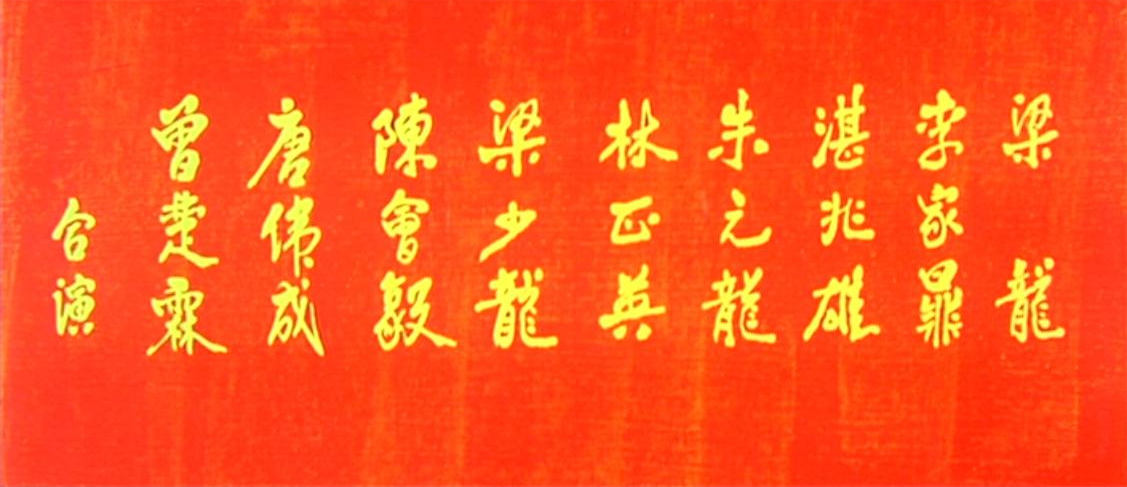 梁龍
李家鼎
湛兆雄
朱元龍
林正英
梁少龍
陳會毅
唐偉成
曾楚霖
合演